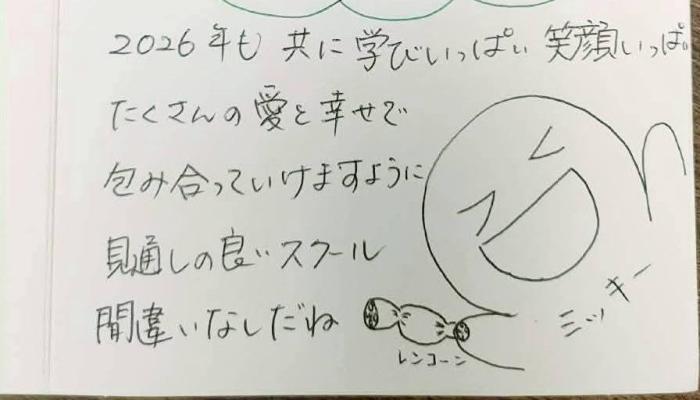 2026年も 共に 学びいっぱい 笑顔いっぱ
たくさんの 愛と 幸せで
包み合っていけますように
見通しの良いスクール
間違いなしだね
ミッキー
レンコーン